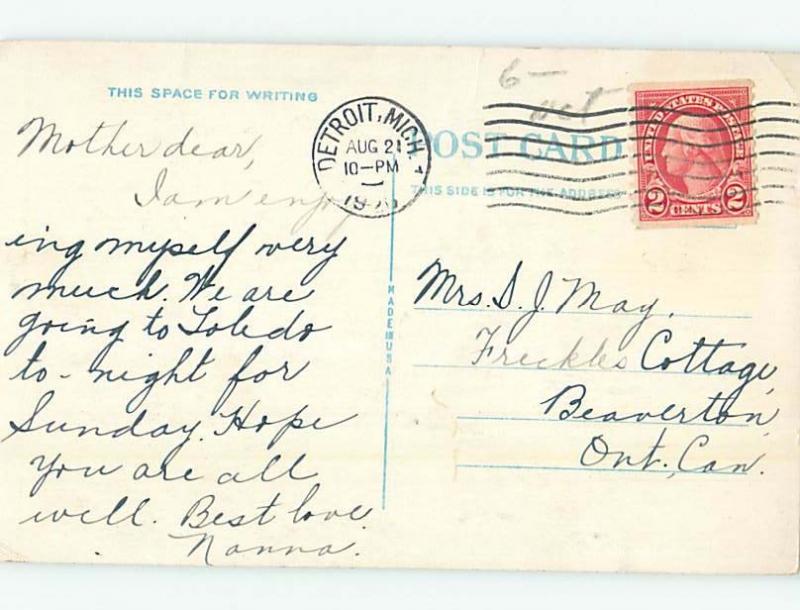 THIS SPACE FOR WRITING
Mother dear,
I am enjoy
ing myself very
much. We are
going to Toledo
to-night for
Sunday. Hope
you are all
well. Best love.
Nanna.
6—
oct
DETROIT, MICH
AUG 21
10-PM
POST CARD
THIS SIDE IS FOR THE ADDRESS
UNITED STATES POSTAGE
2 CENTS 2
MADE IN USA
Mrs. S. J. May,
Freckles Cottage,
Beaverton,
Ont., Can.